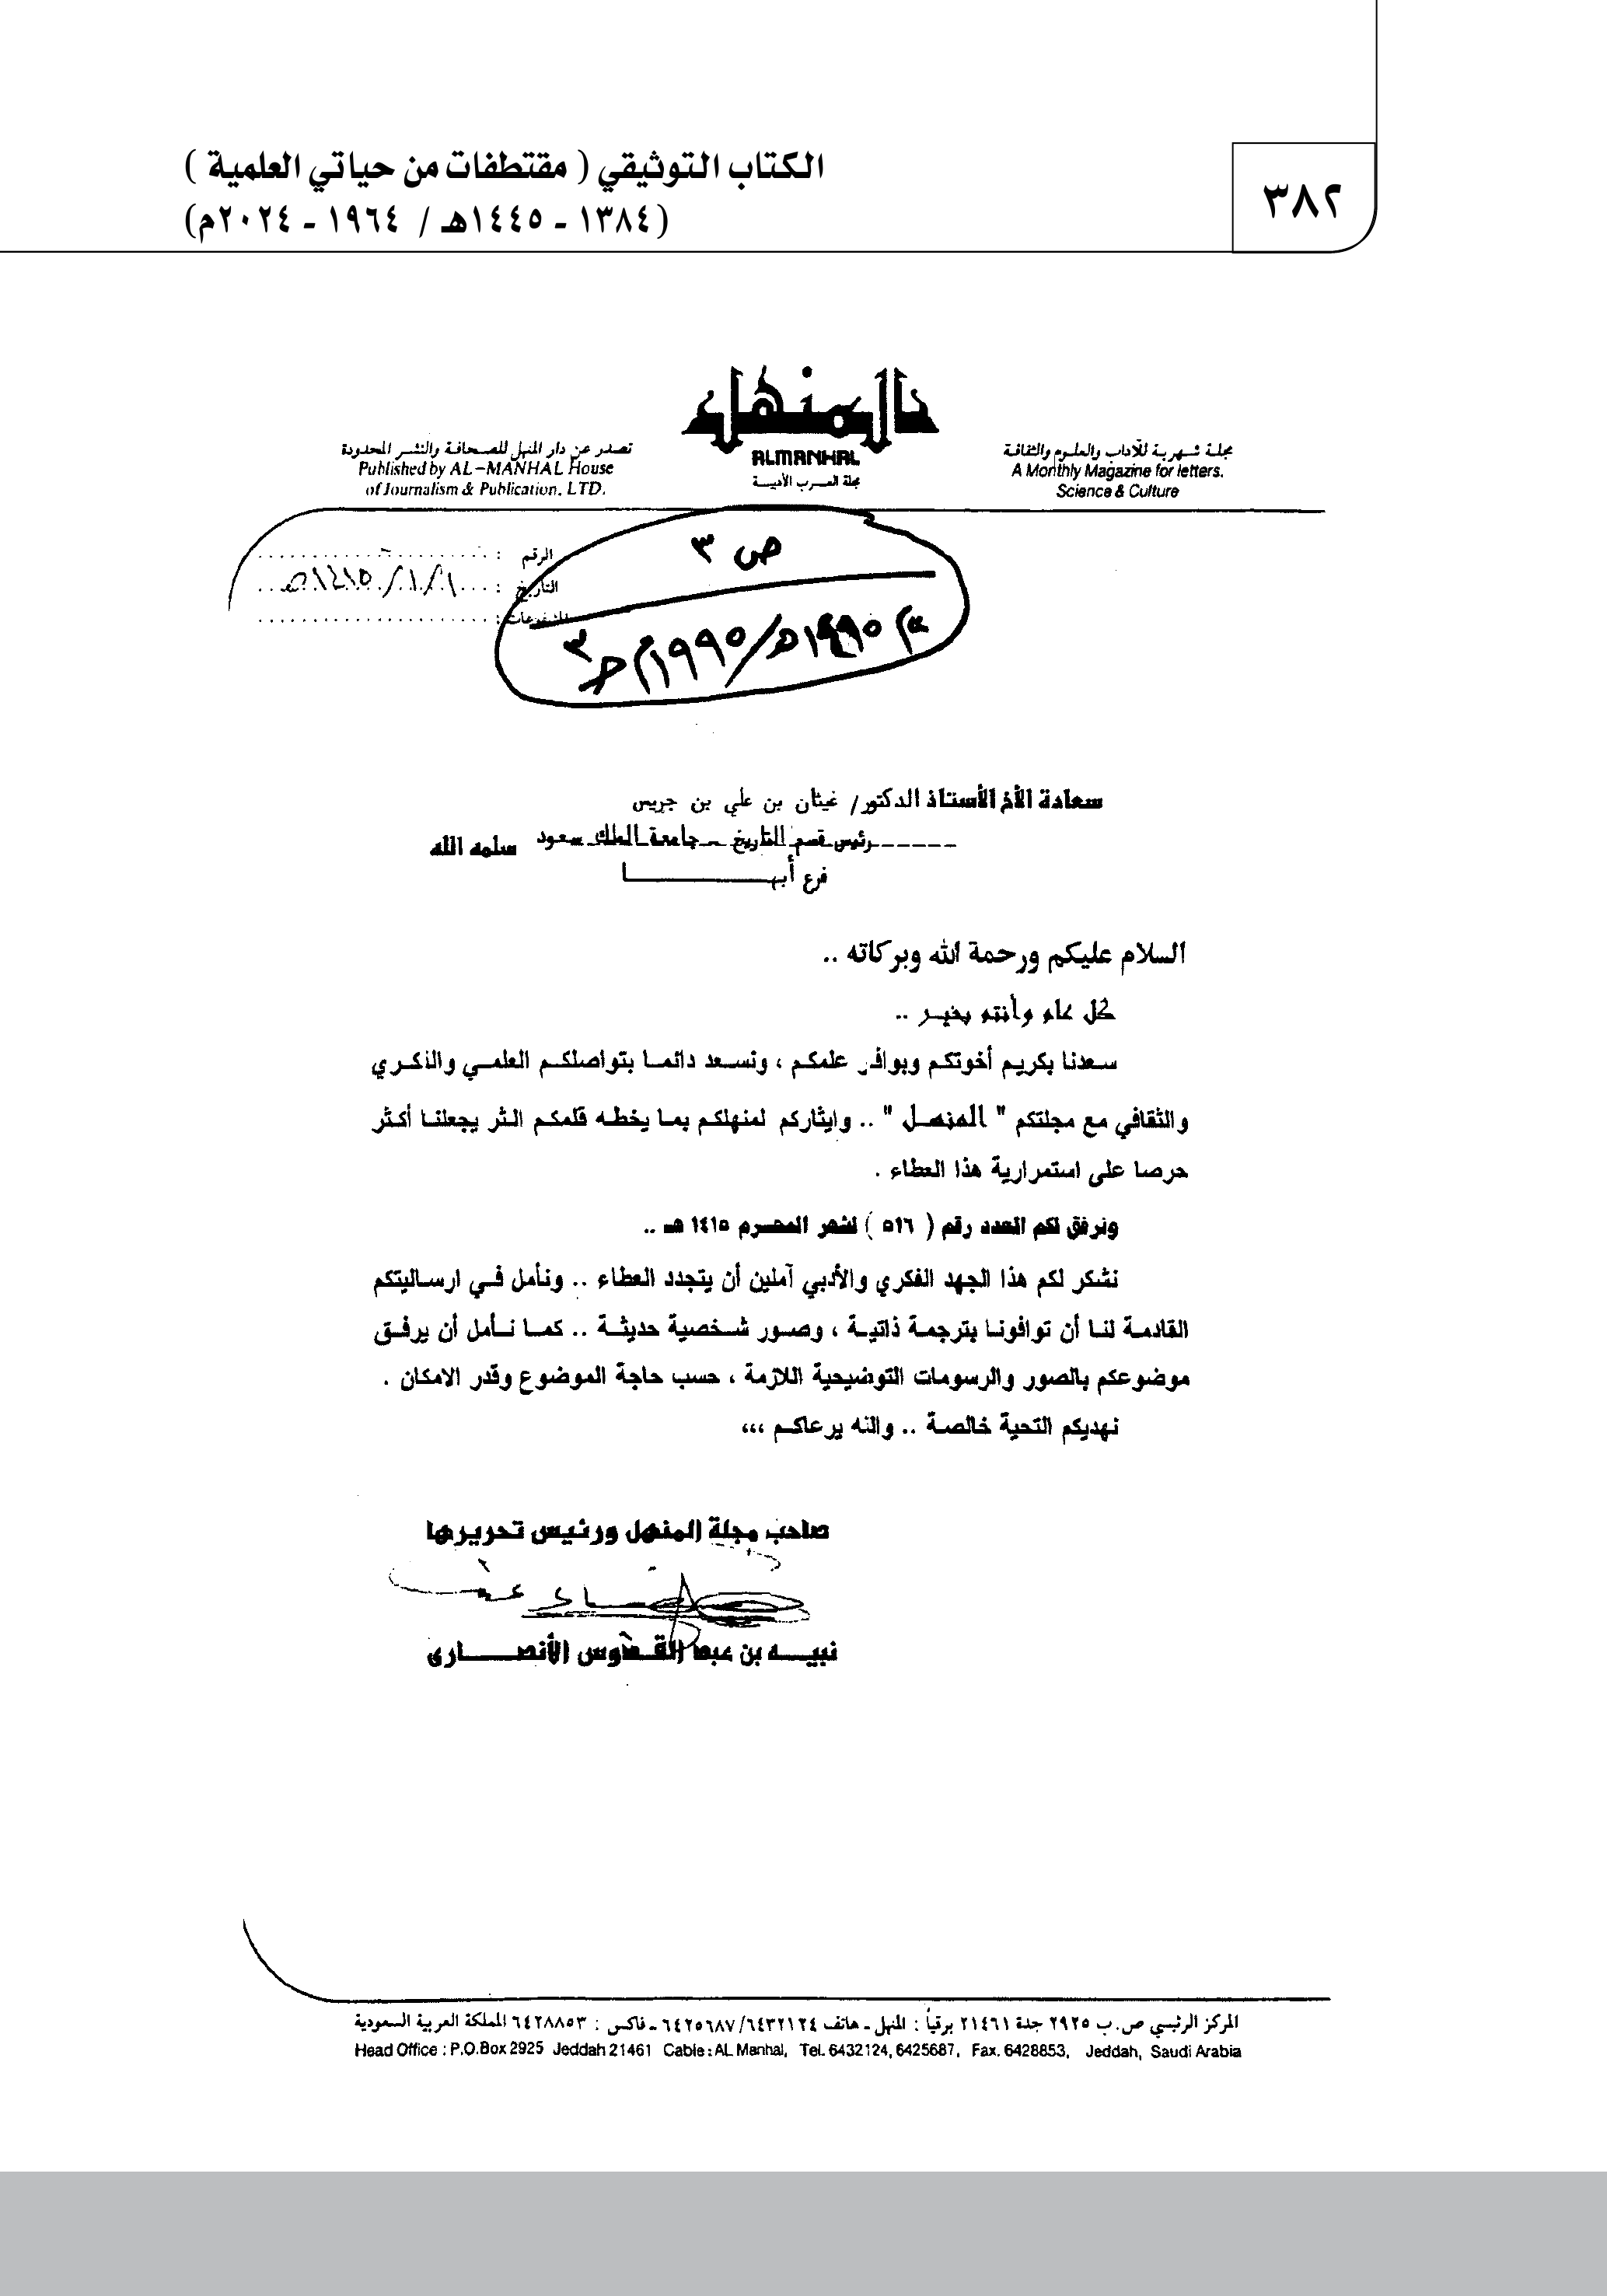 ٣٨٢
الكتاب التوثيقي ( مقتطفات من حياتي العلمية )
(١٣٨٤ - ١٤٤٥هـ / ١٩٦٤ - ٢٠٢٤م)
المنهل
ALMANHAL
مجلة العرب الأدبية
مجلة شهرية للآداب والعلوم والثقافة
A Monthly Magazine for letters.
Science & Culture
تصدر عن دار المنهل للصحافة والنشر المحدودة
Published by AL-MANHAL House
of Journalism & Publication. LTD.
الرقم :
التاريخ : ١/١/١٤١٥هـ
المشفوعات :
ص ٣
١٩٩٥م ح٣
سعادة الأخ الأستاذ الدكتور/ غيثان بن علي بن جريس
رئيس قسم التاريخ - جامعة الملك سعود سلمه الله
فرع أبها
السلام عليكم ورحمة الله وبركاته ..
كل عام وأنتم بخير ..
سعدنا بكريم أخوتكم وبوافر علمكم ، ونسعد دائما بتواصلكم العلمي والذكري
والثقافي مع مجلتكم " المنهل " .. وايثاركم لمنهلكم بما يخطه قلمكم الثر يجعلنا أكثر
حرصا على استمرارية هذا العطاء .
ونرفق لكم العدد رقم ( ٥١٦ ) لشهر المحرم ١٤١٥ هـ ..
نشكر لكم هذا الجهد الفكري والأدبي آملين أن يتجدد العطاء .. ونأمل في ارساليتكم
القادمة لنا أن توافونا بترجمة ذاتية ، وصور شخصية حديثة .. كما نأمل أن يرفق
موضوعكم بالصور والرسومات التوضيحية اللازمة ، حسب حاجة الموضوع وقدر الامكان .
نهديكم التحية خالصة .. والله يرعاكم ،،،
صاحب مجلة المنهل ورئيس تحريرها
نبيه بن عبد القدوس الأنصارى
المركز الرئيسي ص.ب ٢٩٢٥ جدة ٢١٤٦١ برقياً : المنهل - هاتف ٦٤٣٢١٢٤/٦٤٢٥٦٨٧ - فاكس : ٦٤٢٨٨٥٣ المملكة العربية السعودية
Head Office : P.O.Box 2925 Jeddah 21461 Cable : AL Manhal, Tel. 6432124, 6425687, Fax. 6428853, Jeddah, Saudi Arabia